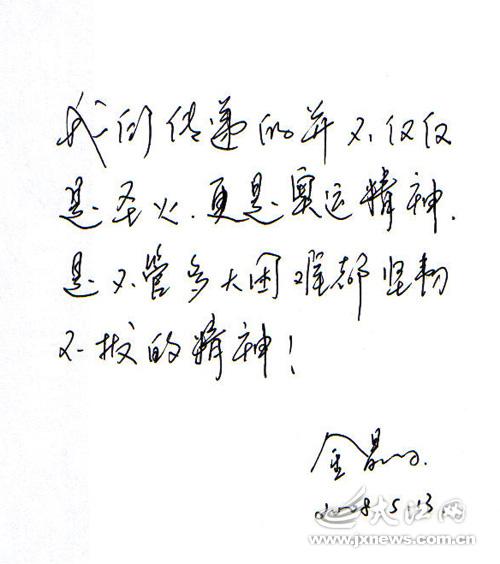 我们传递的并不仅仅
是圣火.更是奥运精神.
是不管多大困难都坚韧
不拔的精神!
金晶.
2008.5.13.
大江网
www.jxnews.com.cn